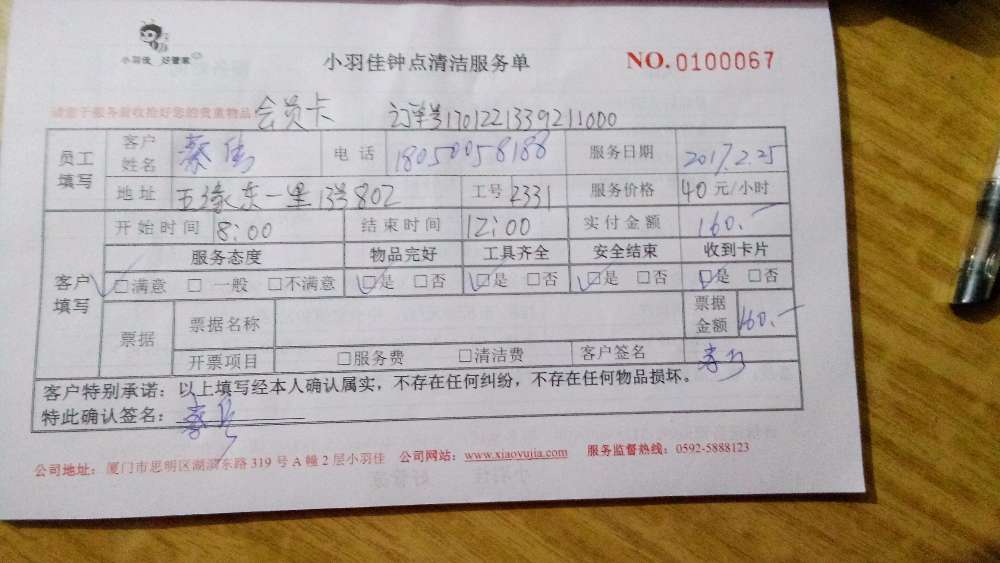 小羽佳 好管家
小羽佳钟点清洁服务单
NO.0100067
请您于服务前收拾好您的贵重物品 会员卡 订单号1701221339211000
员工填写 客户姓名 电话 18050058188 服务日期 2017.2.25
地址 五缘东一里133号802 工号 2331 服务价格 40元/小时
客户填写 开始时间 8:00 结束时间 12:00 实付金额 160.-
服务态度 物品完好 工具齐全 安全结束 收到卡片
☑满意 □一般 □不满意 ☑是 □否 ☑是 □否 ☑是 □否 ☑是 □否
票据 票据名称 票据金额 160.-
开票项目 □服务费 □清洁费 客户签名
客户特别承诺:以上填写经本人确认属实,不存在任何纠纷,不存在任何物品损坏。
特此确认签名:
公司地址:厦门市思明区湖滨东路319号A幢2层小羽佳 公司网站:www.xiaoyujia.com 服务监督热线:0592-5888123